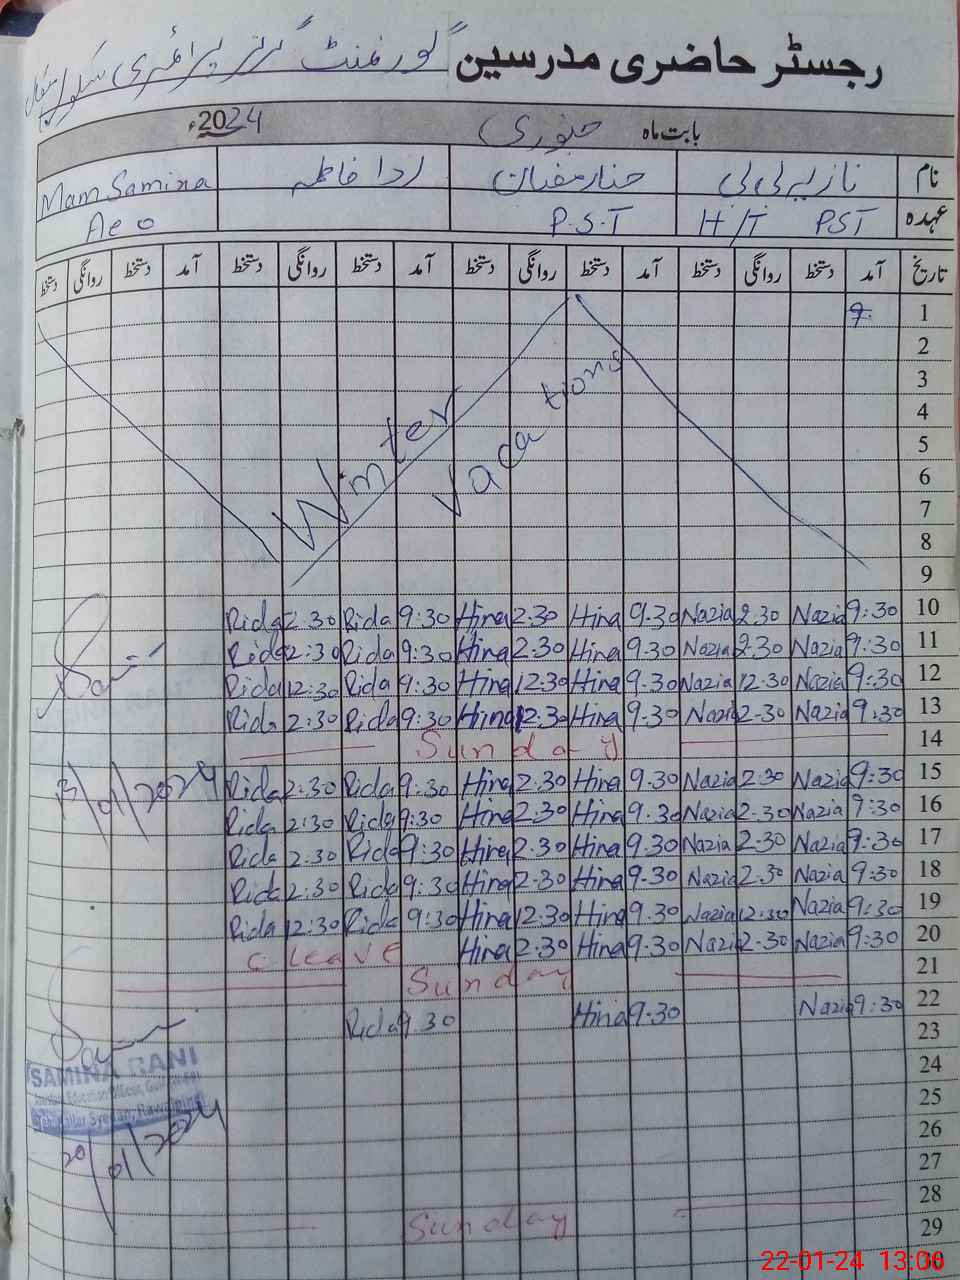 رجسٹر حاضری مدرسین "گورنمنٹ گرلز پرائمری سکول
بابت ماہ جنوری 2024ء
نام نازیہ بی بی حنا رمضان ردا فاطمہ Mam Samina
عہدہ H/T PST P.S.T Aeo
تاریخ آمد دستخط روانگی دستخط آمد دستخط روانگی دستخط آمد دستخط روانگی دستخط
1 9
2
3
4
5
6
7
8
9
Winter
Vacations
Rida 2:30 Rida 9:30 Hina 2:30 Hina 9:30 Nazia 2:30 Nazia 9:30 10
Rida 2:30 Rida 9:30 Hina 2:30 Hina 9:30 Nazia 2:30 Nazia 9:30 11
Rida 12:30 Rida 9:30 Hina 12:30 Hina 9:30 Nazia 12:30 Nazia 9:30 12
Rida 2:30 Rida 9:30 Hina 2:30 Hina 9:30 Nazia 2:30 Nazia 9:30 13
Sunday 14
13/01/2024
Rida 2:30 Rida 9:30 Hina 2:30 Hina 9:30 Nazia 2:30 Nazia 9:30 15
Rida 2:30 Rida 9:30 Hina 2:30 Hina 9:30 Nazia 2:30 Nazia 9:30 16
Rida 2:30 Rida 9:30 Hina 2:30 Hina 9:30 Nazia 2:30 Nazia 9:30 17
Rida 2:30 Rida 9:30 Hina 2:30 Hina 9:30 Nazia 2:30 Nazia 9:30 18
Rida 12:30 Rida 9:30 Hina 12:30 Hina 9:30 Nazia 12:30 Nazia 9:30 19
C leave Hina 2:30 Hina 9:30 Nazia 2:30 Nazia 9:30 20
Sunday 21
Rida 9:30 Hina 9:30 Nazia 9:30 22
23
24
SAMINA RANI
Syedan, Rawalpindi
20/01/2024
25
26
27
28
Sunday
29
30
22-01-24 13:06